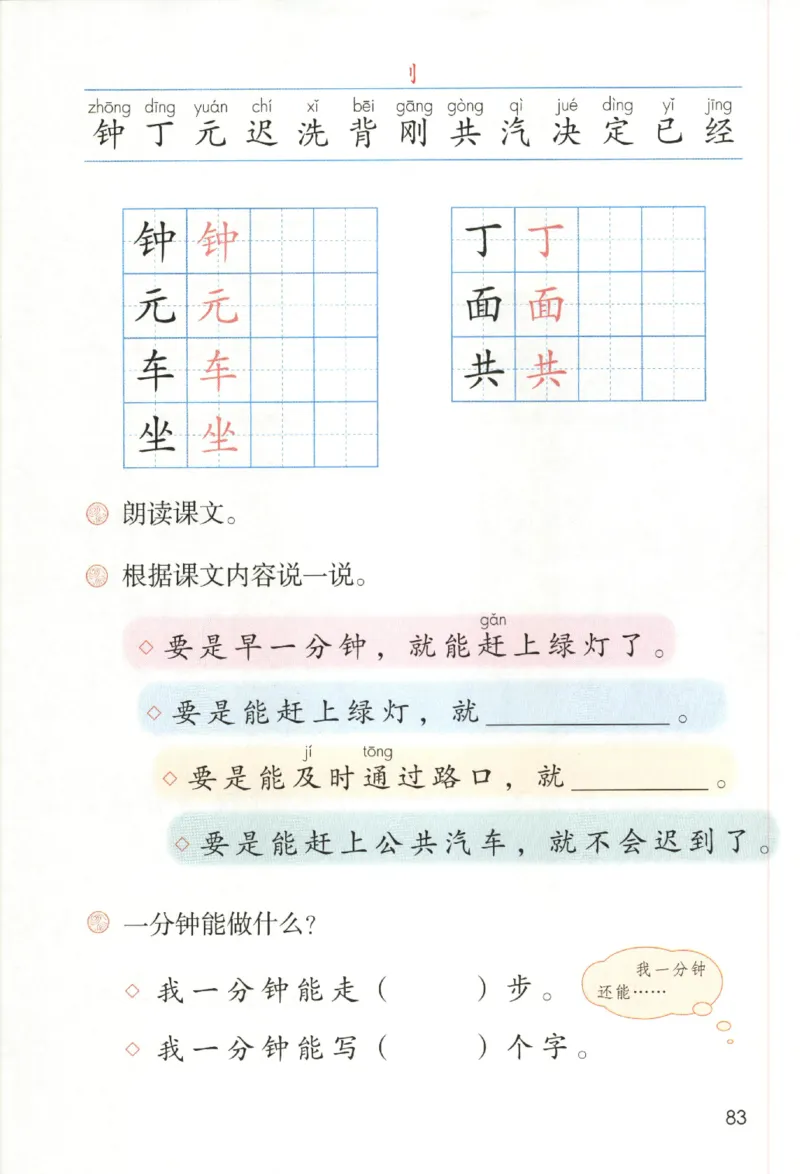 刂
zhōng dīng yuán chí xǐ bēi gāng gòng qì jué dìng yǐ jīng
钟 丁 元 迟 洗 背 刚 共 汽 决 定 已 经
钟 钟
元 元
车 车
坐 坐
丁 丁
面 面
共 共
朗读课文。
根据课文内容说一说。
gǎn
◇ 要是早一分钟，就能赶上绿灯了。
◇ 要是能赶上绿灯，就__________。
jí tōng
◇ 要是能及时通过路口，就________。
◇ 要是能赶上公共汽车，就不会迟到了。
一分钟能做什么？
◇ 我一分钟能走（ ）步。
我一分钟
还能……
◇ 我一分钟能写（ ）个字。
83